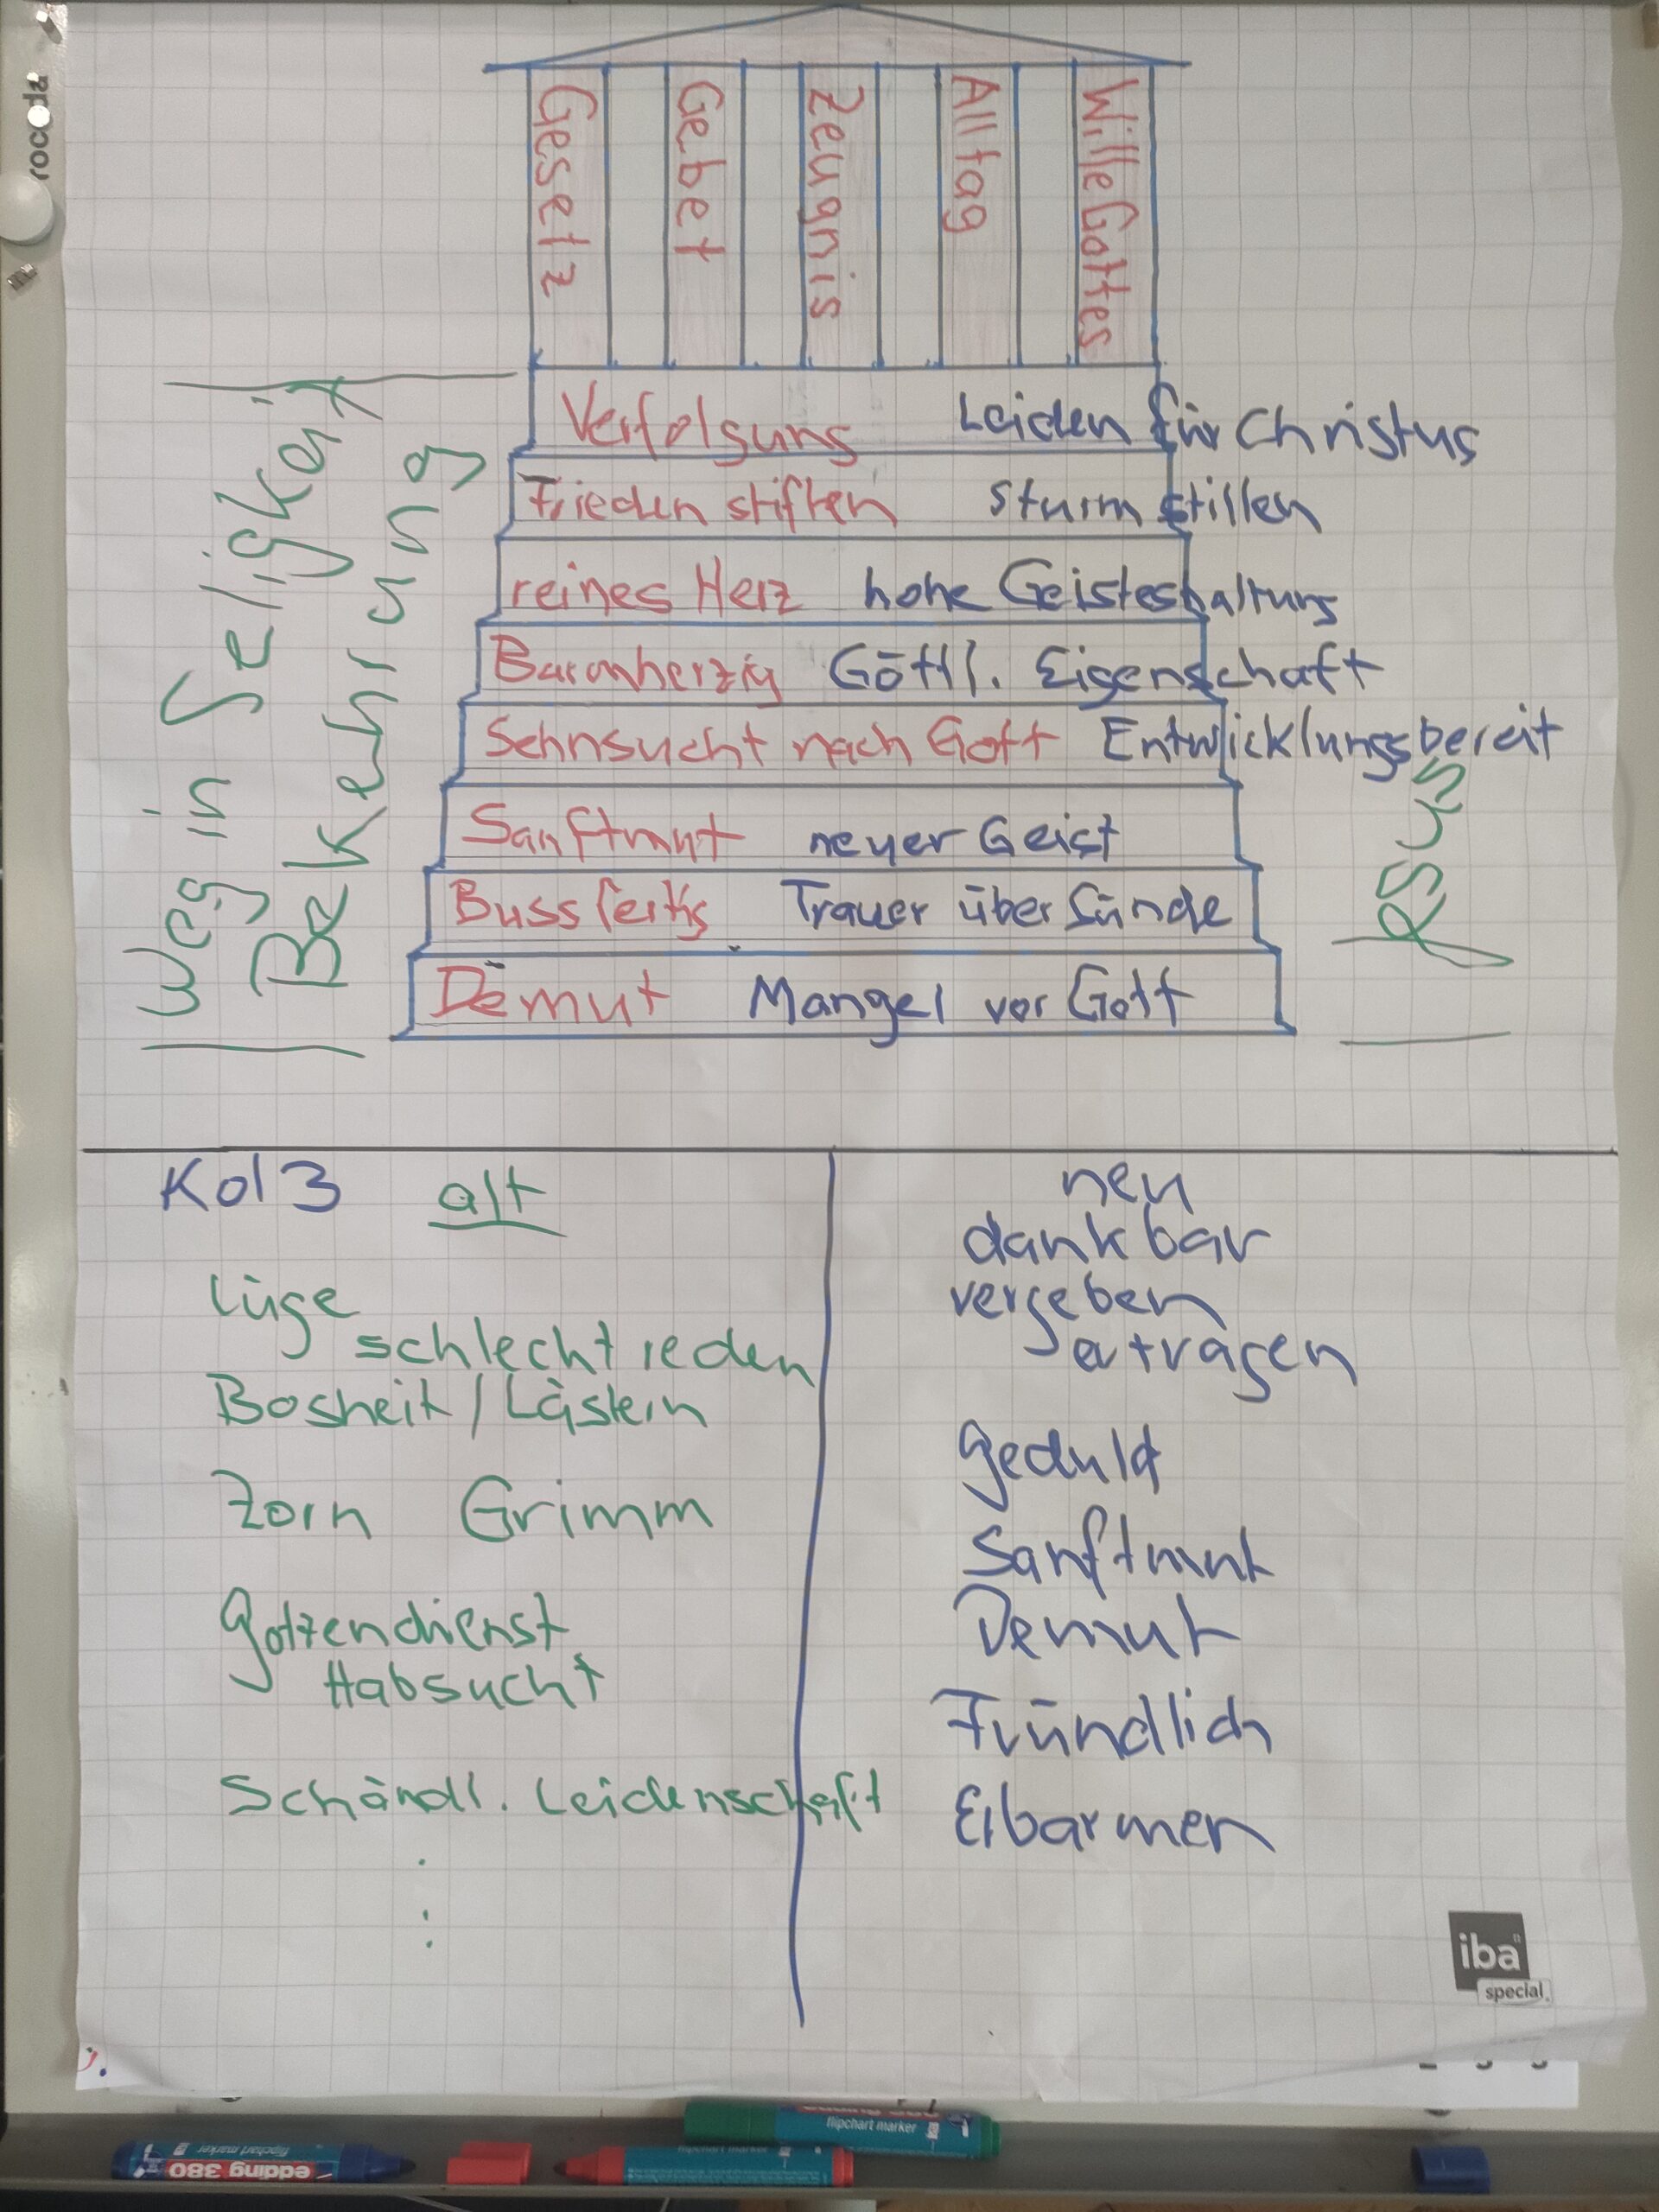 rocada
Gesetz
Gebet
Zeugnis
Alltag
Wille Gottes
Verfolgung Leiden für Christus
Frieden stiften Sturm stillen
reines Herz hohe Geisteshaltung
Barmherzig Göttl. Eigenschaft
Sehnsucht nach Gott Entwicklungsbereit
Sanftmut neuer Geist
Bussfertig Trauer über Sünde
Demut Mangel vor Gott
Weg in Seligkeit
Bekehrung
Jesus
Kol 3 alt
Lüge
schlecht reden
Bosheit / Lästern
Zorn Grimm
Götzendienst
Habsucht
Schändl. Leidenschaft
neu
dankbar
vergeben
ertragen
Geduld
Sanftmut
Demut
Fründlich
Erbarmen
iba
special
flipchart marker
flipchart marker
edding 380
flipchart marker